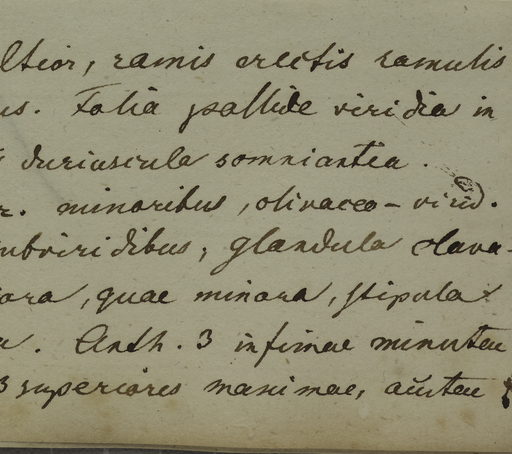 ltior, ramis erectis ramulis
us. Folia pallide viridia in
duriuscula somniantia.
r. minoribus, olivaceo-virid.
ubviridibus, glandula clava-
ora, quae minora, stipula
a. Anth. 3 infimae minutae
3 superiores maximae,